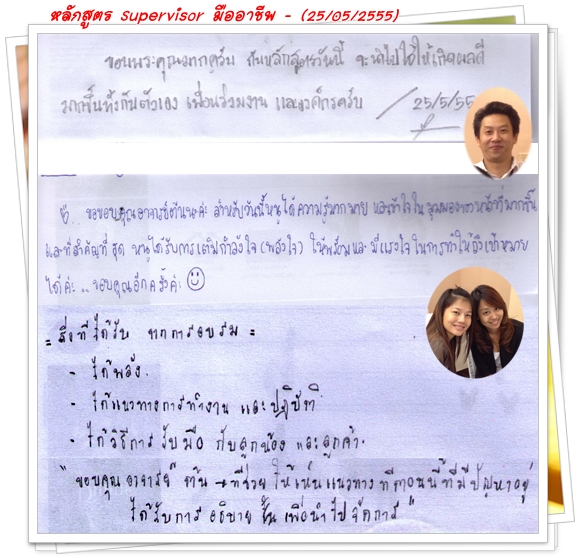 หลักสูตร Supervisor มืออาชีพ - (25/05/2555)
ขอบพระคุณมากครับ กับหลักสูตรวันนี้ จะนำไปใช้ให้เกิดผลดี
มากขึ้นทั้งกับตัวเอง เพื่อนร่วมงาน และองค์กรครับ / 25/5/55
ขอขอบคุณอาจารย์ต้นนะค่ะ สำหรับวันนี้หนูได้ความรู้มากมาย และเข้าใจในมุมมองของ ที่มากขึ้น
และที่สำคัญที่สุด หนูได้รับการเติมกำลังใจ (พลังใจ) ให้พร้อมและมีแรงใจในการทำให้ถึงเป้าหมาย
ได้ค่ะ .. ขอบคุณอีกครั้งค่ะ ☺
= สิ่งที่ได้รับ จากการอบรม =
- ได้พลัง.
- ได้แนวทางการทำงาน และปฏิบัติ
- ได้วิธีการ รับมือ กับลูกน้อง และลูกค้า.
"ขอบคุณ อาจารย์" ต้น → ที่ช่วย ให้เห็นแนวทาง ที่ตอนนี้ ที่มีปัญหาอยู่
ได้รับการ อธิบาย เพื่อนำไปจัดการ "